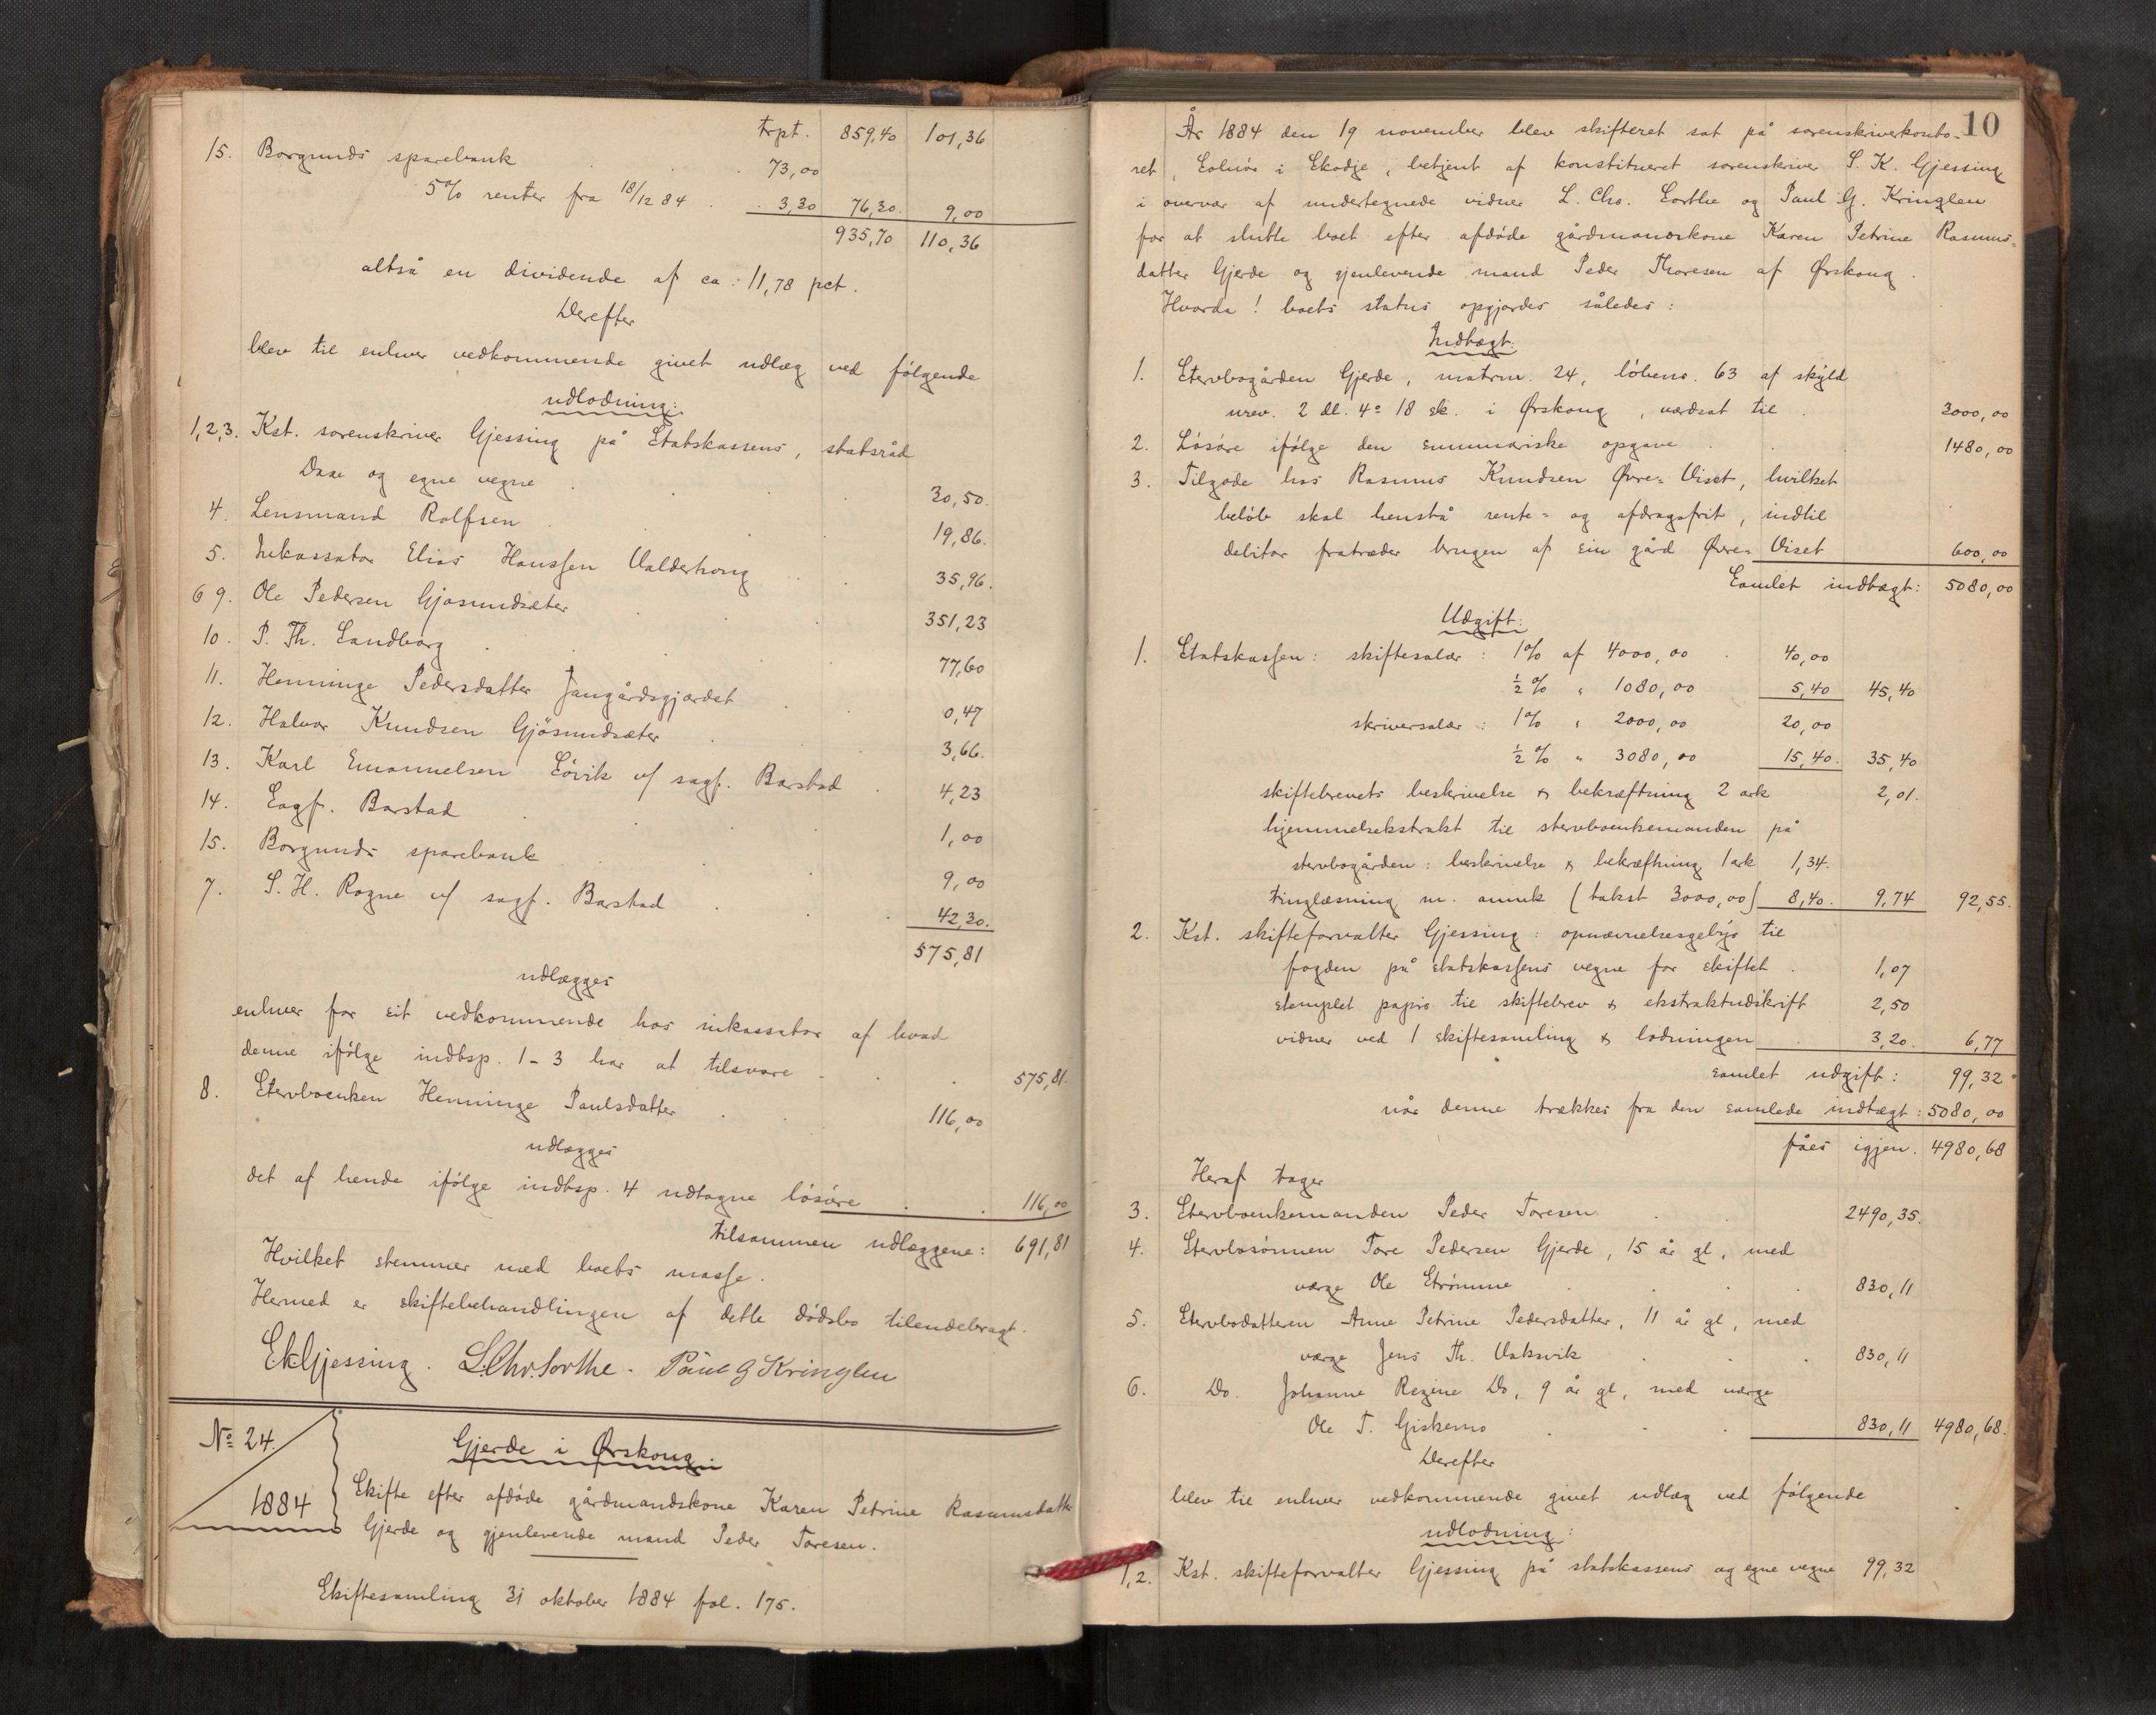 trpt. 859,40 101,36
15. Borgunds sparebank . . 73,00
5% renter fra 18/12 84 . . 3,30 76,30. 9,00
935,70 110,36
altså en dividende af ca: 11,78 pct.
Derefter
blev til enhver vedkommende givet udlæg ved følgende
udlodning:
1,2,3. Kst. sorenskriver Gjessing på Statskassens, statsråd
Daae og egne vegne . . . 30,50.
4. Lensmand Rolfsen . . . 19,86.
5. Inkassator Elias Hanssen Valderhoug . . 35,96.
6 9. Ole Pedersen Gjøsundsæter . . 351,23
10. P. Th. Sandborg . . . 77,60
11. Henninge Pedersdatter Jangårdsgjærdet . . 0,47
12. Halvor Knudsen Gjøsundsæter . . 3,66.
13. Karl Emanuelsen Søvik v/ sagf. Barstad . 4,23
14. Sagf. Barstad . . . 1,00
15. Borgunds sparebank . . . 9,00
7. S. H. Rogne v/ sagf. Barstad . . 42,30.
575,81
udlægges
enhver for sit vedkommende hos inkassator af hvad
denne ifølge indtsp. 1-3 har at tilsvare . . . 575,81.
8. Stervboenken Henninge Paulsdatter . 116,00
udlægges
det af hende ifølge indtsp. 4 udtagne løsøre . . 116,00
tilsammen udlæggene: 691,81
Hvilket stemmer med boets masse.
Hermed er skiftebehandlingen af dette dødsbo tilendebragt.
SKGjessing. L.Chr.Sorthe. Paul G Kringlen
No 24. Gjerde i Ørskoug.
1884 Skifte efter afdøde gårdmandskone Karen Petrine Rasmusdatter
Gjerde og gjenlevende mand Peder Toresen.
Skiftesamling 31 oktober 1884 fol. 175.
10
År 1884 den 19 november blev skifteret sat på sorenskriverkonto-
ret, Solnør i Skodje, betjent af konstitueret sorenskriver S. K. Gjessing
i overvær af undertegnede vidner L. Chr. Sorthe og Paul G. Kringlen
for at slutte boet efter afdøde gårdmandskone Karen Petrine Rasmus=
datter Gjerde og gjenlevende mand Peder Thoresen af Ørskoug.
Hvorda! boets status opgjordes således:
Indtægt:
1. Stervbogården Gjerde, matrn. 24, løbeno. 63 af skyld
urev. 2 dl. 4 o 18 sk. i Ørskoug, værdsat til . 3000,00
2. Løsøre ifølge den summariske opgave . . 1480,00
3. Tilgode hos Rasmus Knudsen Øvre= Viset, hvilket
beløb skal henstå rente= og afdragsfrit, indtil
debitor fratræder brugen af sin gård Øvre= Viset 600,00
Samlet indtægt: 5080,00
Udgift:
1. Statskassen: skiftesalær: 1% af 4000,00 . 40,00
½% " 1080,00 5,40 45,40
skriversalær: 1% " 2000,00 20,00
½% " 3080,00 15,40. 35,40
skiftebrevets beskrivelse & bekræftning 2 ark 2,01.
hjemmelsekstrakt til stervboenkemanden på
stervbogården: beskrivelse & bekræftning 1 ark 1,34.
tinglæsning m. anmk (takst 3000,00) 8,40. 9,74 92,55.
2. Kst. skifteforvalter Gjessing: opnævnelsesgebyr til
fogden på statskassens vegne for skiftet . 1,07
stemplet papir til skiftebrev & ekstraktudskrift 2,50
vidner ved 1 skiftesamling & lodningen . 3,20. 6,77
samlet udgift: 99,32
når denne trækkes fra den samlede indtægt: 5080,00
fåes igjen. 4980,68
Heraf tager
3. Stervboenkemanden Peder Toresen . . 2490,35.
4. Stervbosønnen Tore Pedersen Gjerde, 15 år gl, med
værge Ole Strømme . . . 830,11
5. Stervbodatteren Anne Petrine Pedersdatter, 11 år gl, med
værge Jens Th. Vaksvik . . . 830,11
6. Do. Johanne Regine Do, 9 år gl, med værge
Ole T. Giskemo . . . 830,11 4980,68.
Derefter
blev til enhver vedkommende givet udlæg ved følgende
udlodning:
1,2. Kst. skifteforvalter Gjessing på statskassens og egne vegne 99,32